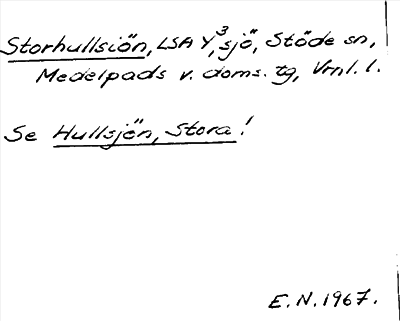 Storhullsiön, LSA Y,³ sjö, Stöde sn,
Medelpads v. doms. tg, Vrnl. l.
Se Hullsjön, Stora!
E.N. 1967.